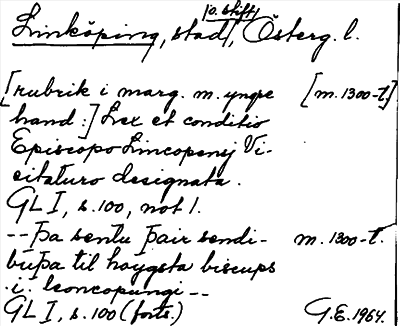 Linköping, stad /o. stift/, Österg. l.
[rubrik i marg. m. yngre [m. 1300-t.]
hand:] Lex et conditio
Episcopo Lincopensj Vi-
citaturo designata.
GL I, s. 100, not 1.
-- þa sentu þair sendi- m. 1300-t.
buþa til hoygsta biscups
.i. leoncopungi --
GL I, s. 100 (forts.) G.E. 1964.